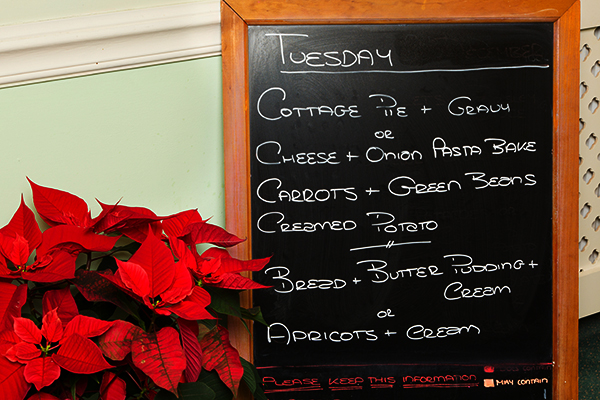 TUESDAY
COTTAGE PIE + GRAVY
OR
CHEESE + ONION PASTA BAKE
CARROTS + GREEN BEANS
CREAMED POTATO
BREAD + BUTTER PUDDING +
CREAM
OR
APRICOTS + CREAM
PLEASE KEEP THIS INFORMATION
MAY CONTAIN